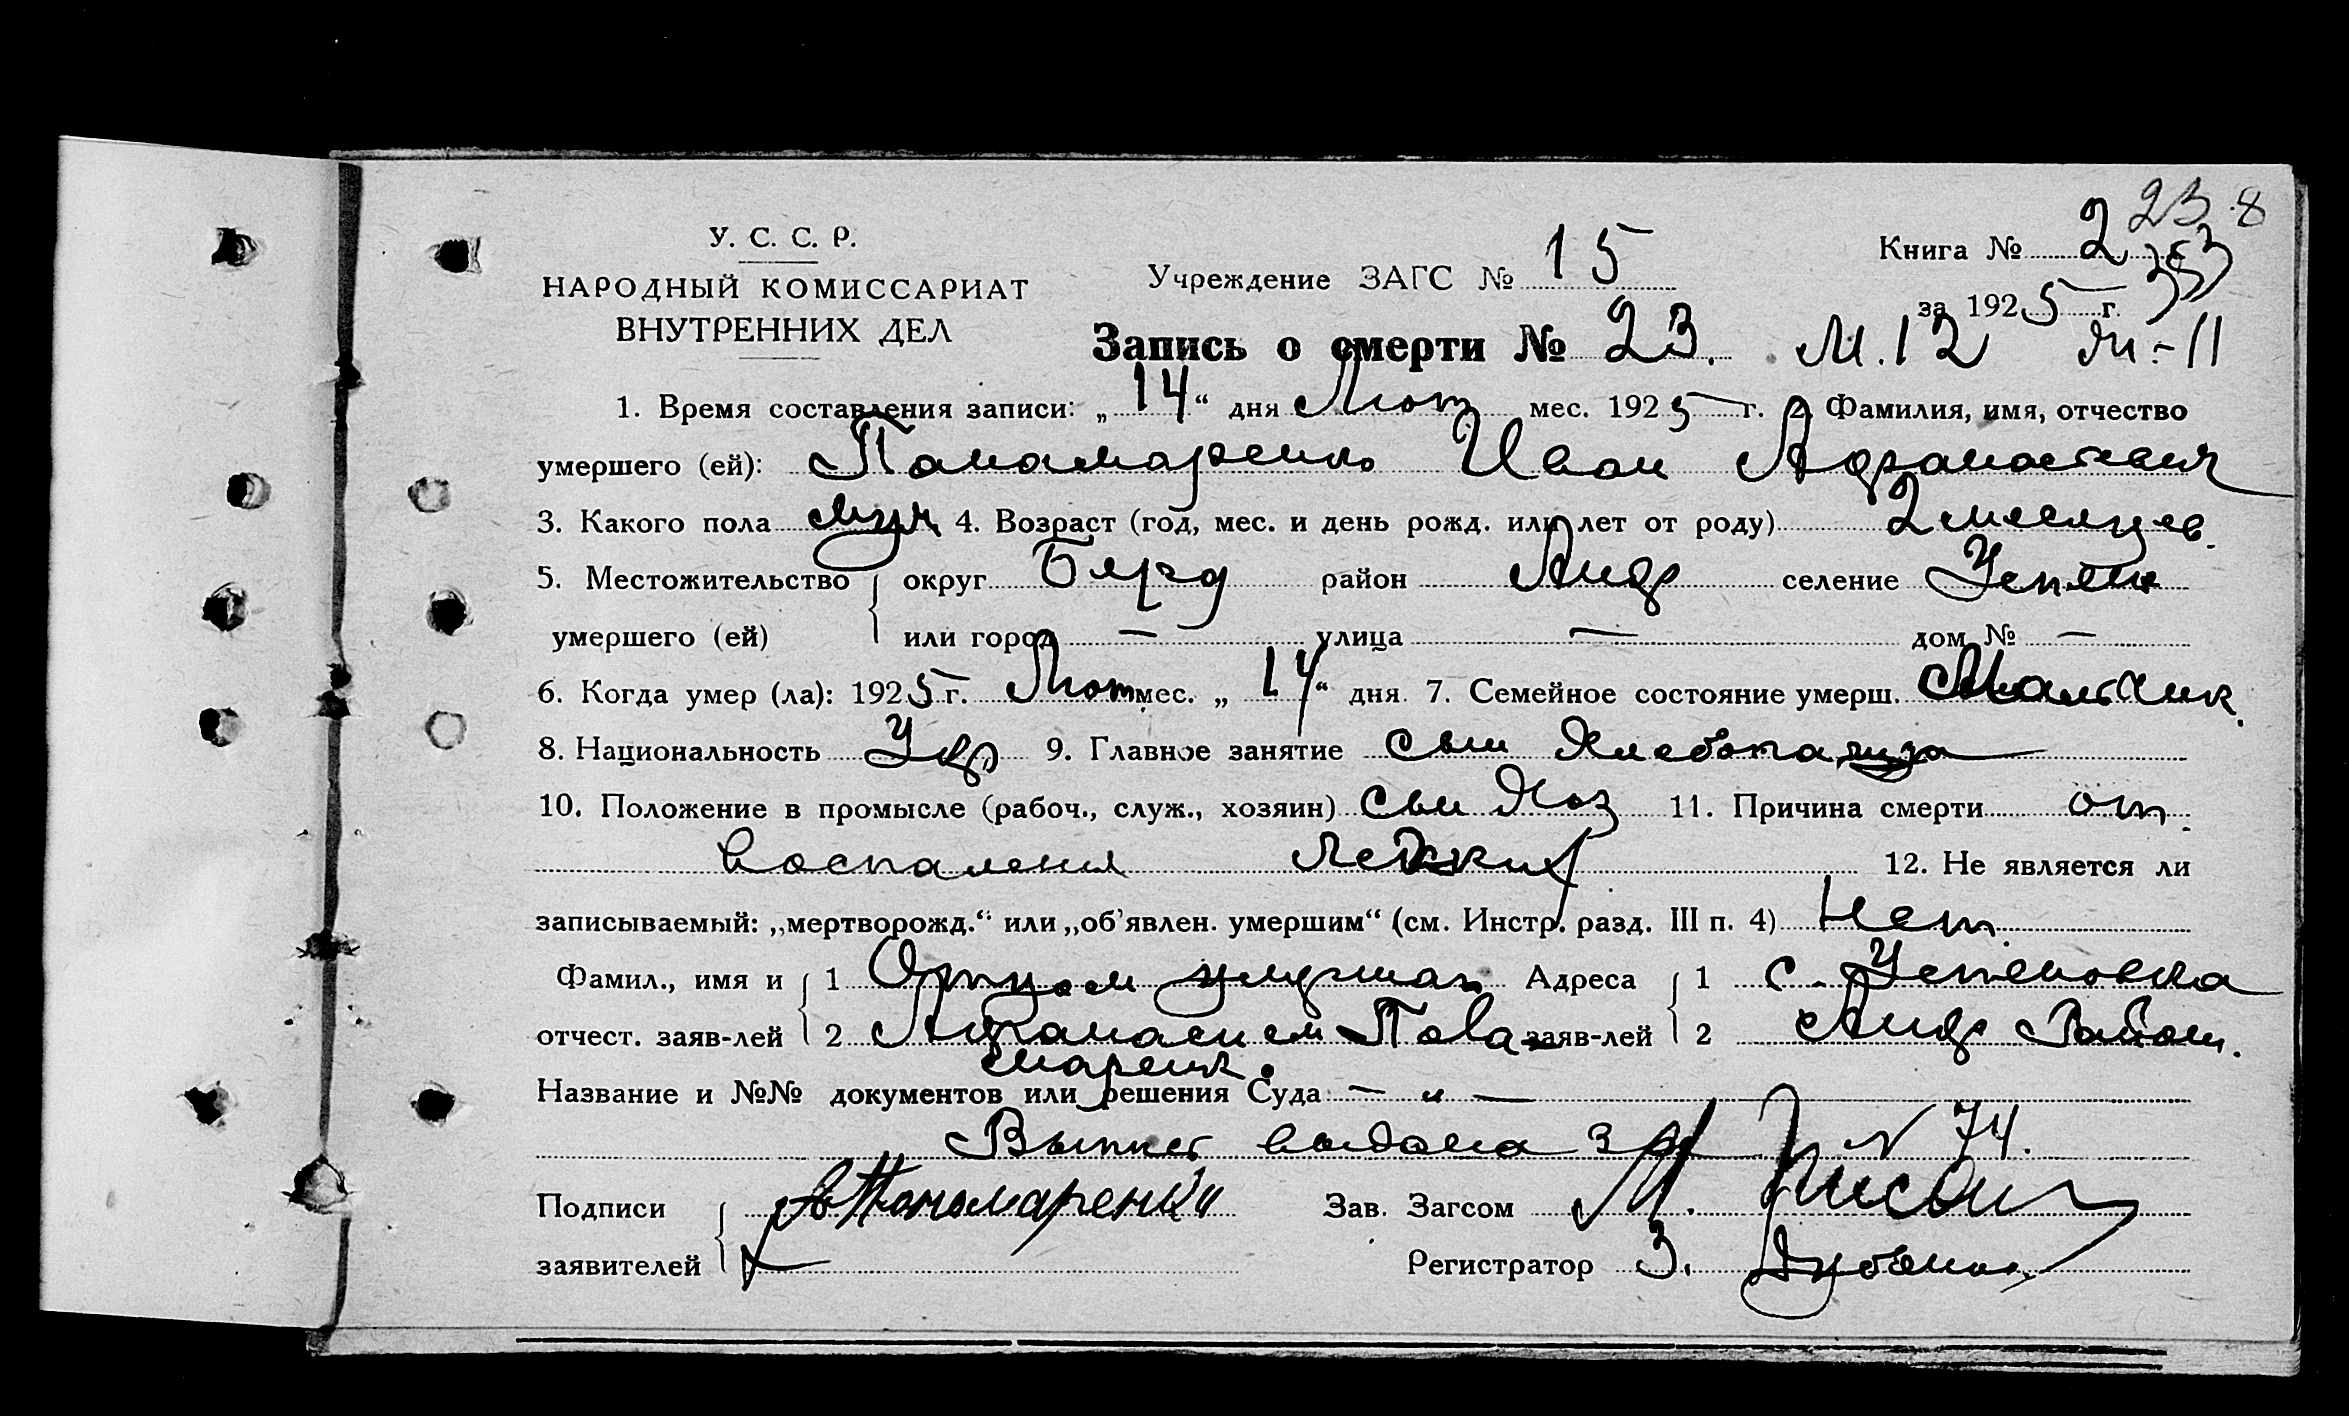 23 8
У. С. С. Р.
НАРОДНЫЙ КОМИССАРИАТ
ВНУТРЕННИХ ДЕЛ
Учреждение ЗАГС № 15
Книга № 2 353
за 1925 г.
Запись о смерти № 23. М. 12 Ж-11
1. Время составления записи: „14“ дня Лют мес. 1925 г. 2. Фамилия, имя, отчество
умершего (ей): Панамаренко Иван Афанасиевич
3. Какого пола муж 4. Возраст (год, мес. и день рожд. или лет от роду) 2 месяцев.
5. Местожительство округ Бярд район Андр селение Успен
умершего (ей) или город — улица — дом № —
6. Когда умер (ла): 1925 г. Лют мес. „14“ дня. 7. Семейное состояние умерш. Мальчик.
8. Национальность Укр 9. Главное занятие сын Хлебопашца
10. Положение в промысле (рабоч., служ., хозяин) сын Хоз 11. Причина смерти от
воспаления Легких 12. Не является ли
записываемый: „мертворожд.“ или „об’явлен. умершим“ (см. Инстр. разд. III п. 4) Нет.
Фамил., имя и 1 Отцом умершаго Адреса 1 с. Успеновка
отчест. заяв-лей 2 Афанасием Пова- заяв-лей 2 Андр Район.
маренк.
Название и №№ документов или решения Суда: — „ —
Выпись выдана за N 74.
Подписи А Пономаренки Зав. Загсом М.
заявителей Регистратор З.